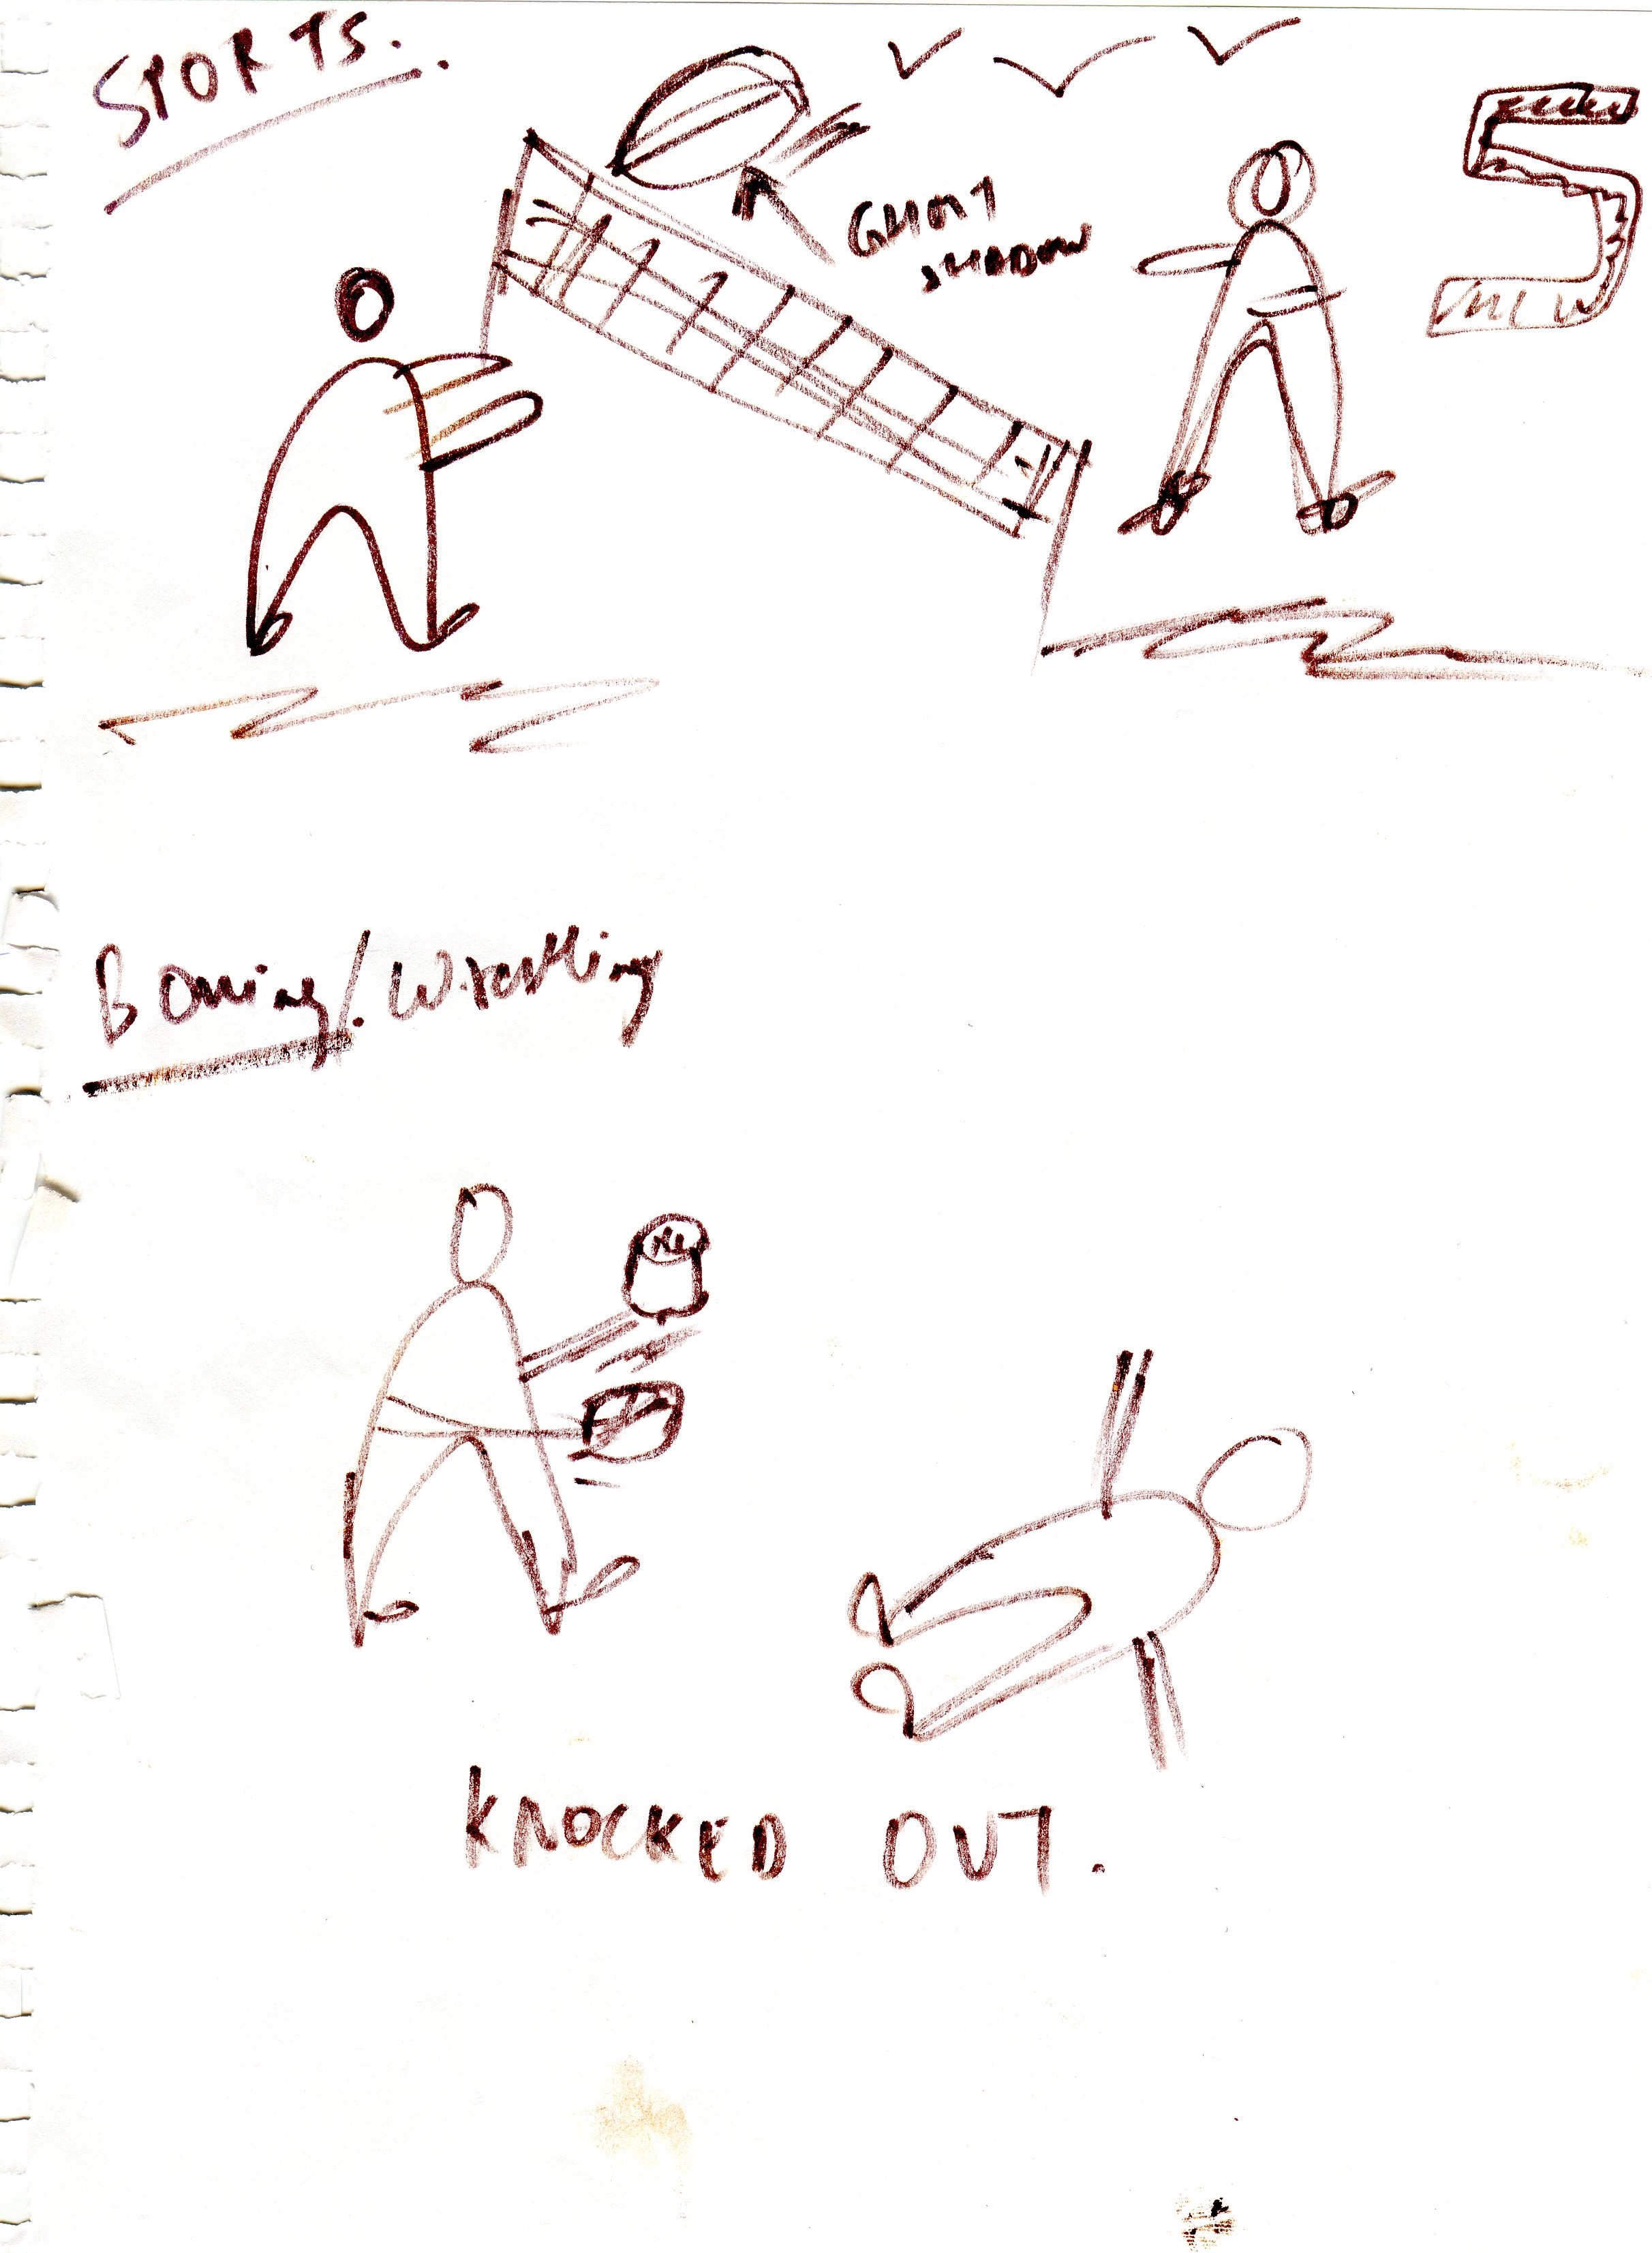 SPORTS.
GHOST
SHADOW
Boxing/Wrestling
KNOCKED OUT.